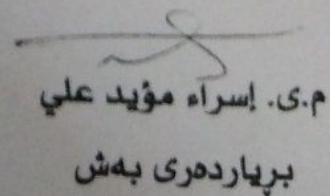 م.ی. إسراء مؤید علي
بریاردەری بەش